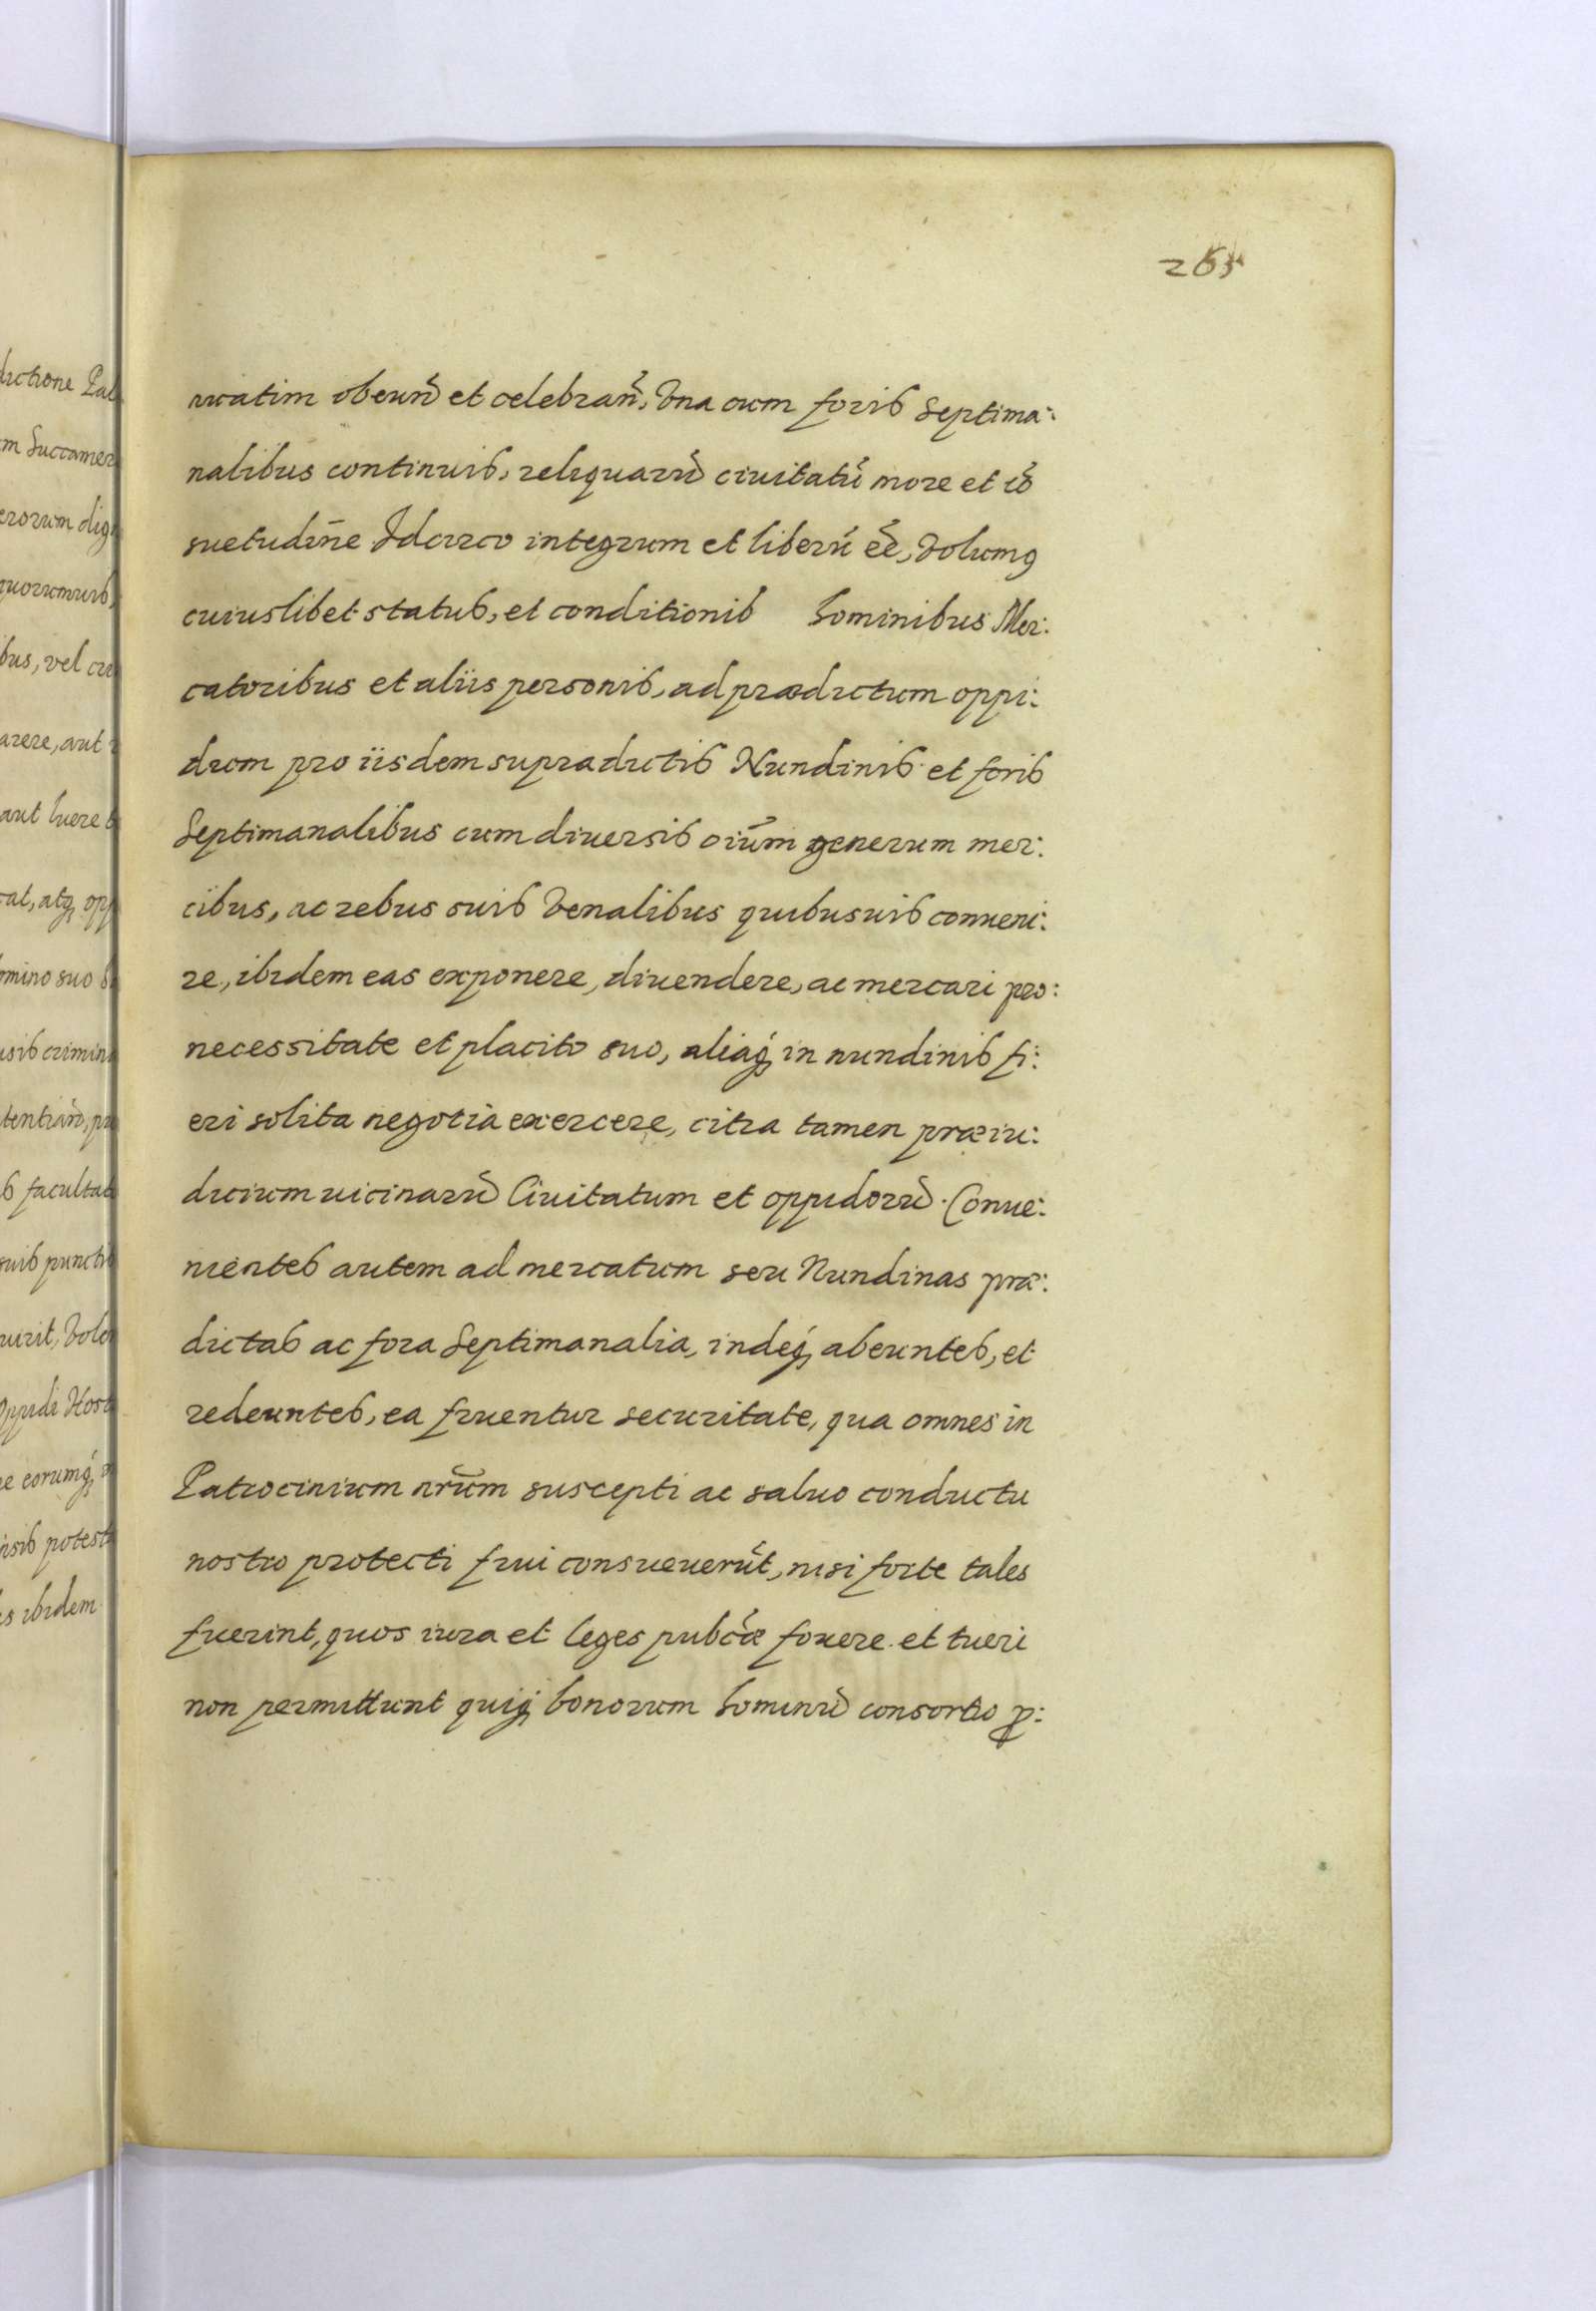 265
ductione Pal
m Succamer
erorum dig
quorumuis,
bus, vel cu
arere, aut
aut luere
at, atq opp
omino suo
usis crimin
tentiarũ, pu
s facultat
suis puncti
uerit, Vole
Oppidi Host
e eorumq́
isis potest
s ibidem
uatim obeuñ et celebrañ, Vna cum foris Septima:
nalibus continuis, reliquarũ ciuitatũ more et cõ
suetudiñe Idcirco integrum et liberũ eẽ, Volumq
cuiuslibet status, et conditionis hominibus Mer:
catoribus et aliis personis, ad prædictum oppi:
dum pro iisdem supradictis Nundinis et foris
Septimanalibus cum diuersis oiũm generum mer:
cibus, ac rebus suis Venalibus quibusuis conueni:
re, ibidem eas exponere, diuendere, ac mercari pro:
necessitate et placito suo, aliaq́ in nundinis fi:
eri solita negotia exercere, citra tamen præiu:
dicium uicinarũ Ciuitatum et oppidorũ. Conue:
nientes autem ad mercatum seu Nundinas præ:
dictas ac fora Septimanalia, indeq́ abeuntes, et
redeuntes, ea fruentur securitate, qua omnes in
Patrocinium nrũm suscepti ac saluo conductu
nostro protecti frui consueuerũt, nisi forte tales
fuerint, quos iura et leges pubcæ fouere et tueri
non permittunt quiq́ bonorum hominũ consortio ꝓ: